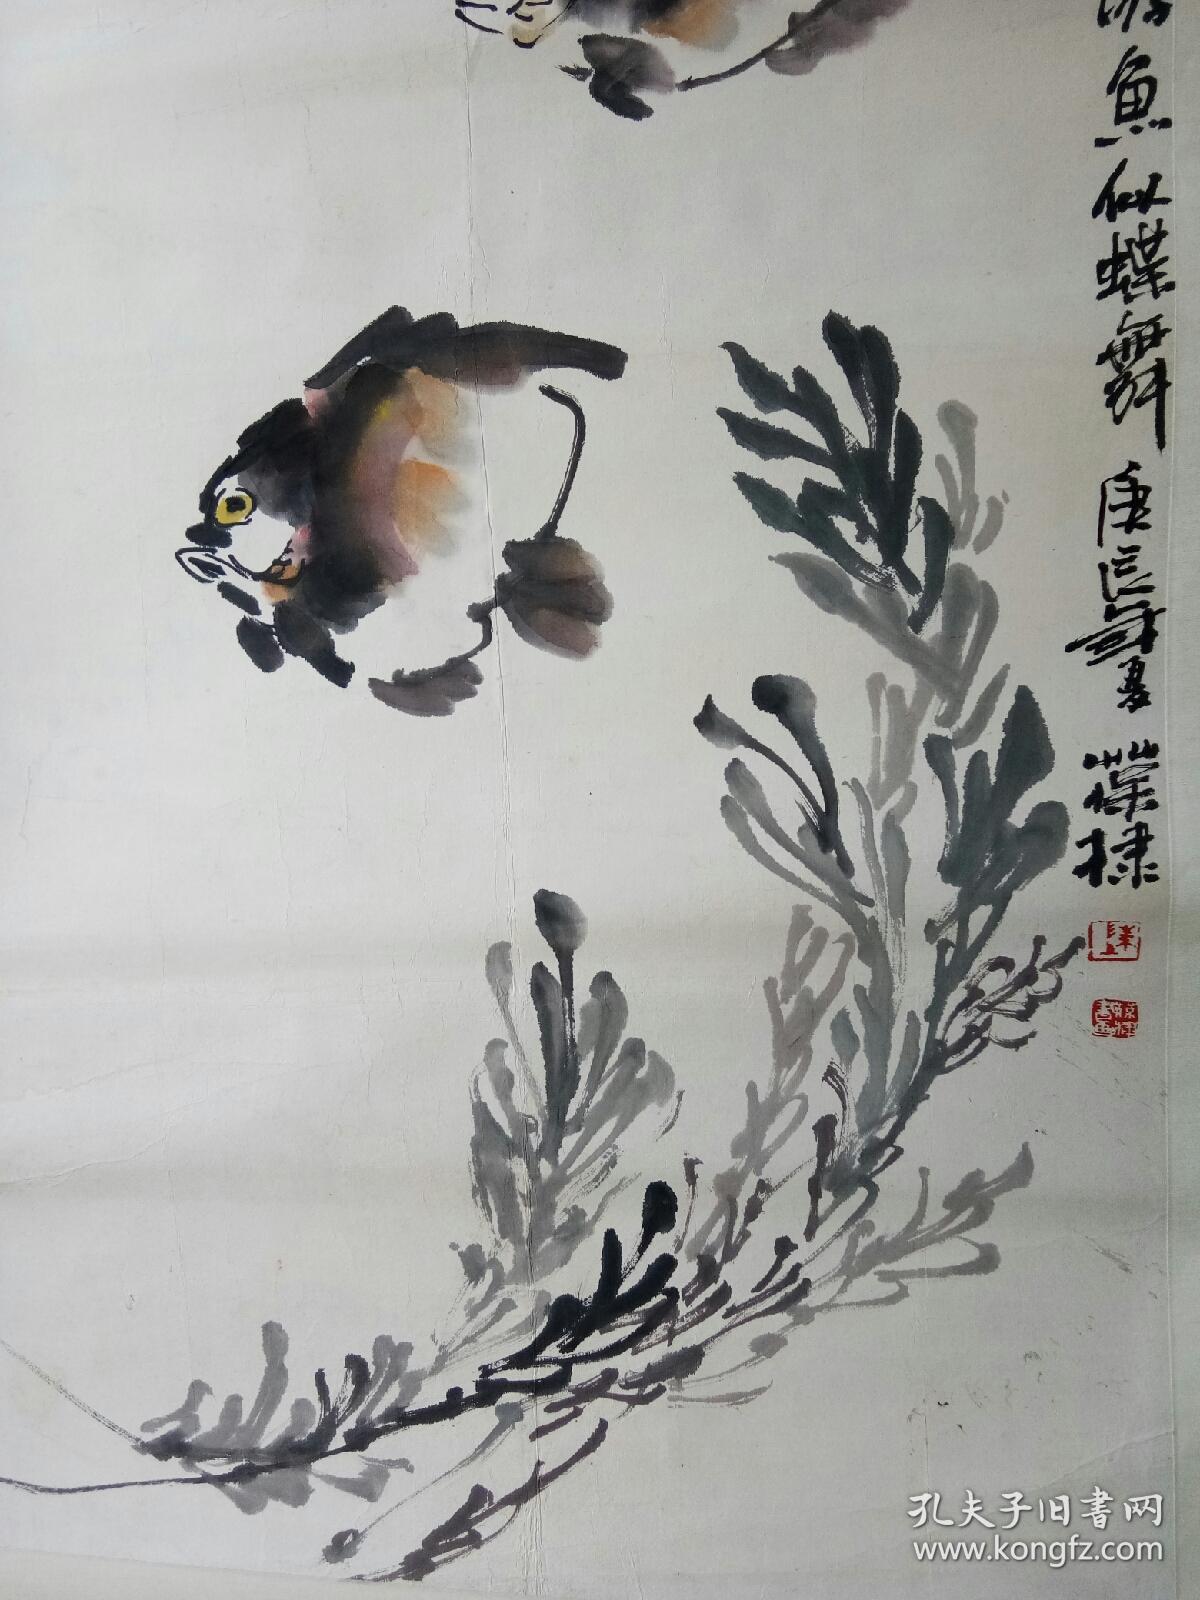 游魚似蝶舞 庚辰年夏 葆棣
孔夫子旧书网
www.kongfz.com